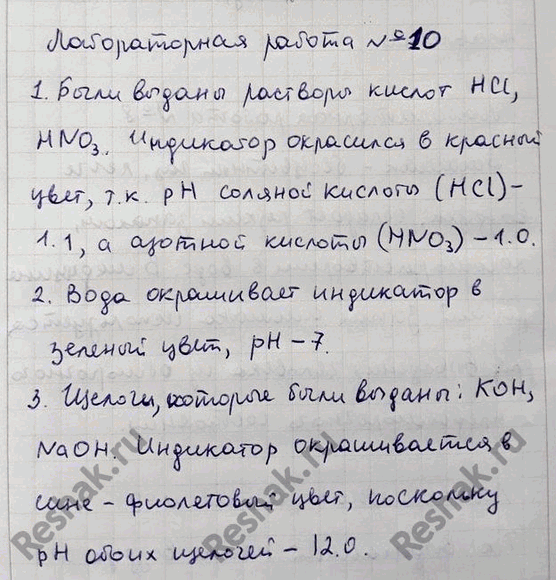 Лабораторная работа №10
1. Были выданы растворы кислот HCl,
HNO₃. Индикатор окрасился в красный
цвет, т.к. pH соляной кислоты (HCl)-
1.1, а азотной кислоты (HNO₃) - 1.0.
2. Вода окрашивает индикатор в
зеленый цвет, pH - 7.
3. Щелочи, которые были выданы: KOH,
NaOH. Индикатор окрашивается в
сине - фиолетовый цвет, поскольку
pH обоих щелочей - 12.0.
Reshak.ru
Reshak.ru
Reshak.ru